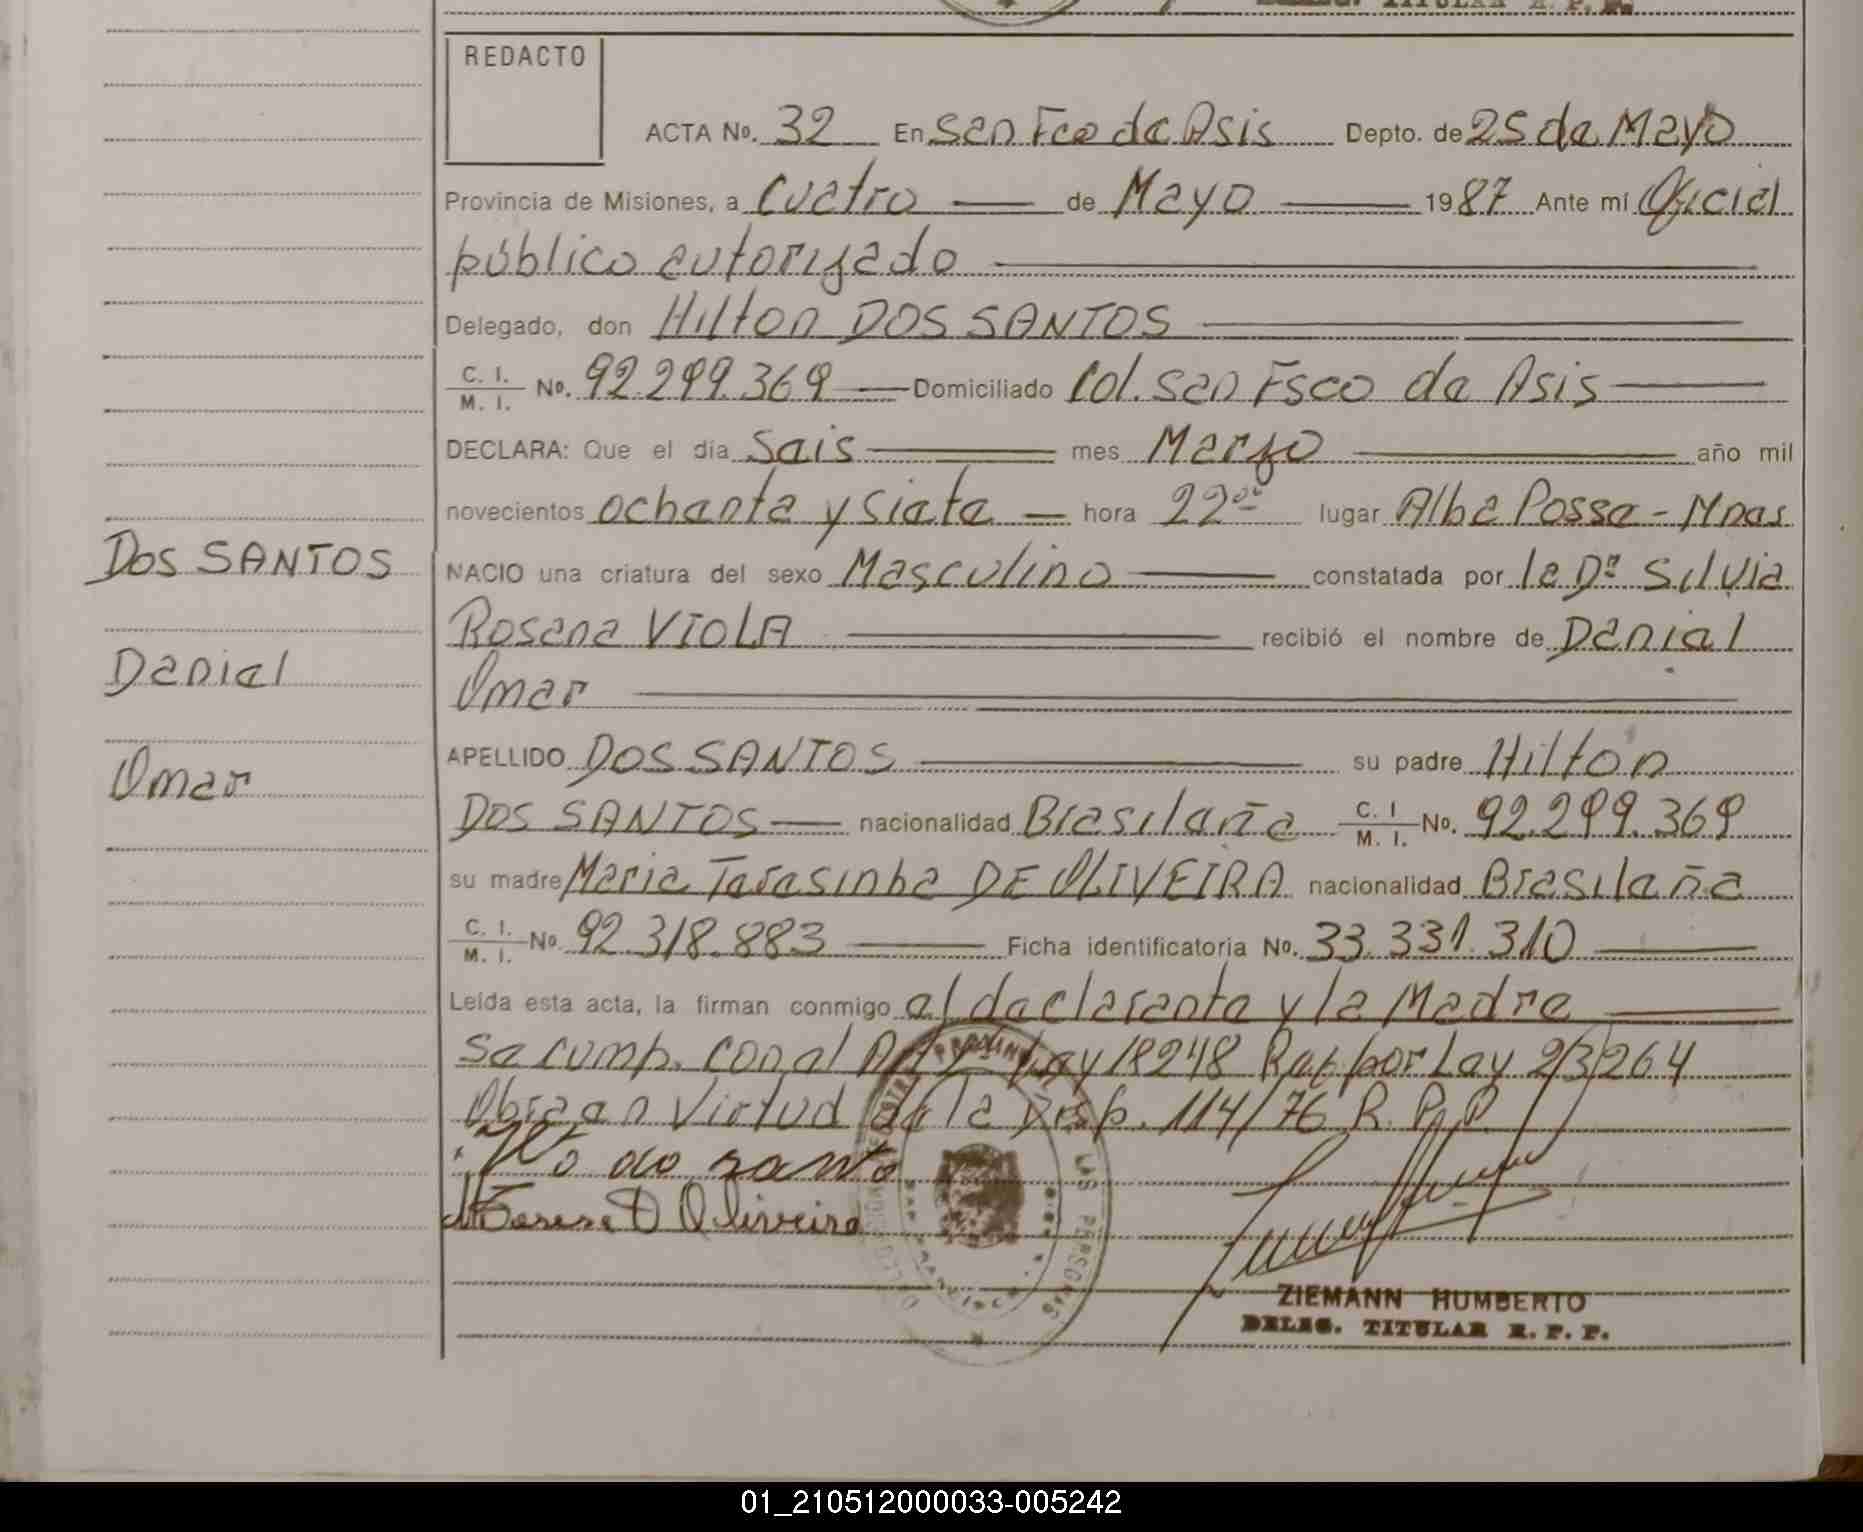 DELEG. TITULAR R. P. P.
REDACTO
ACTA No. 32 En San Fco de Asis Depto. de 25 de Mayo
Provincia de Misiones, a Cuatro de Mayo 1987 Ante mi Oficial
público autorizado
Delegado, don Hilton DOS SANTOS
C. I. M. I. No. 92.299.369 Domiciliado Col. San Fsco de Asis
DECLARA: Que el día Seis mes Marzo año mil
novecientos ochenta y siete hora 22 00 lugar Alba Posse - Mnes
NACIO una criatura del sexo Masculino constatada por la Dra Silvia
Rosana VIOLA recibió el nombre de Daniel
Omar
APELLIDO DOS SANTOS su padre Hilton
DOS SANTOS nacionalidad Brasileña C. I M. I. No. 92.299.369
su madre Maria Teresinha DE OLIVEIRA nacionalidad Brasileña
C. I. M. I. No. 92.318.883 Ficha identificatoria No. 33.331.310
Leída esta acta, la firman conmigo el declarante y la Madre
Se cump. con el Ley 18248 por Ley 23264
Obra en Virtud de la Disp. 114/76 R. P. P.
M Teresa D Oliveira
LAS PERSONAS
ZIEMANN HUMBERTO
DELEG. TITULAR R. P. P.
DOS SANTOS
Daniel
Omar
01_210512000033-005242